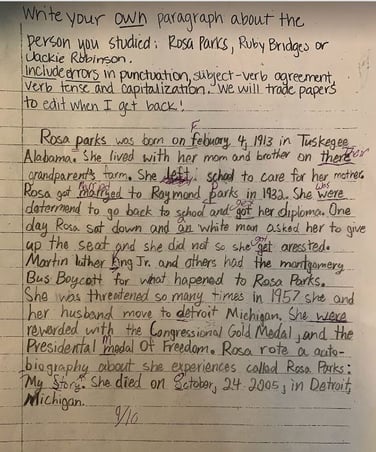 Write your own paragraph about the
person you studied: Rosa Parks, Ruby Bridges or
Jackie Robinson.
Include errors in punctuation, subject-verb agreement,
verb tense and capitalization. We will trade papers
to edit when I get back!
F
Rosa parks was born on febuary 4, 1913 in Tuskegee
Alabama. She lived with her mom and brother on there
grandparent's farm. She left school to care for her mother.
Rosa got married to Raymond parks in 1932. She were
determend to go back to school and got her diploma. One
day Rosa sat down and an white man asked her to give
up the seat and she did not so she get aressted.
Martin luther king Jr. and others had the montgomery
Bus Boycott for what hapened to Rosa Parks.
She was threatened so many times in 1957 she and
her husband move to detroit Michigan. She were
rewarded with the Congressional Gold Medal, and the
Presidental medal Of Freedom. Rosa rote a auto-
biography about she experiences called Rosa Parks:
My Story. She died on October, 24 2005, in Detroit,
Michigan.
9/10